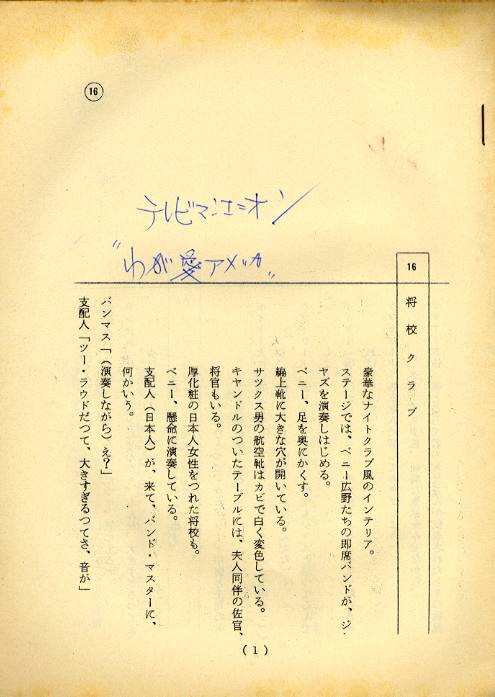 ⑯
テレビマンユニオン
"わが愛アメリカ"
16
将校クラブ
豪華なナイトクラブ風のインテリア。
ステージでは、ベニー広野たちの即席バンドが、ジャ
ヤズを演奏しはじめる。
ベニー、足を奥にかくす。
編上靴に大きな穴が開いている。
サックス男の航空靴はカビで白く変色している。
キャンドルのついたテーブルには、夫人同伴の佐官、
将官もいる。
厚化粧の日本人女性をつれた将校も。
ベニー、懸命に演奏している。
支配人(日本人)が、来て、バンド・マスターに、
何かいう。
バンマス「(演奏しながら)え?」
支配人「ツー・ラウドだつて、大きすぎるつてさ、音が」
(1)